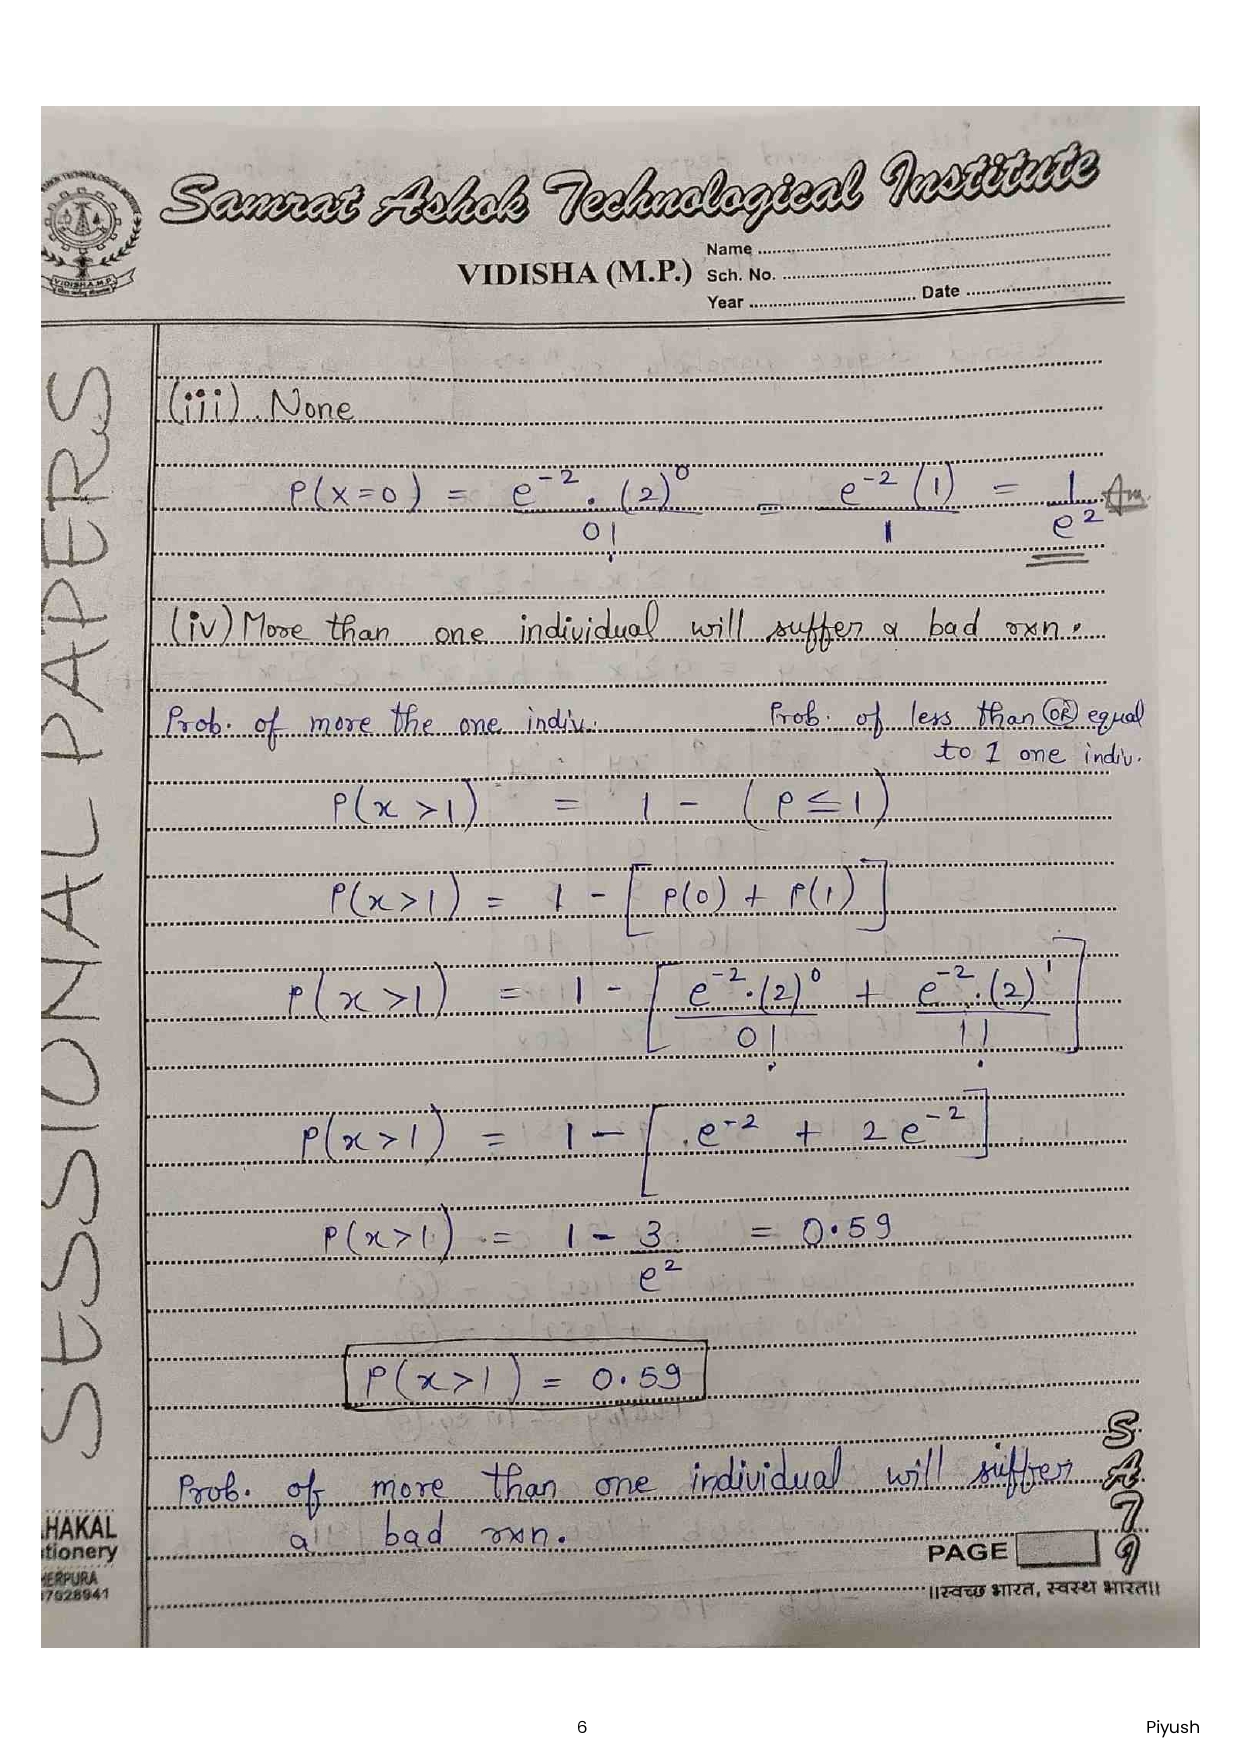 Samrat Ashok Technological Institute
VIDISHA (M.P.)
Name
Sch. No.
Year Date
SESSIONAL PAPERS
(iii). None
P(x=0) = e^-2 . (2)^0 / 0! = e^-2 (1) / 1 = 1 / e^2 Ans.
(iv) More than one individual will suffer a bad rxn.
Prob. of more the one indiv. Prob. of less than OR equal
to 1 one indiv.
P(x >1) = 1 - (P ≤ 1)
P(x>1) = 1 - [P(0) + P(1)]
P(x >1) = 1 - [e^-2 . (2)^0 / 0! + e^-2 . (2)^1 / 1!]
P(x>1) = 1 - [e^-2 + 2e^-2]
P(x>1) = 1 - 3 / e^2 = 0.59
P(x>1) = 0.59
Prob. of more than one individual will suffer
a bad rxn.
SATI
PAGE
॥स्वच्छ भारत, स्वस्थ भारत॥
HAKAL
tionery
HERPURA
97028941
6
Piyush